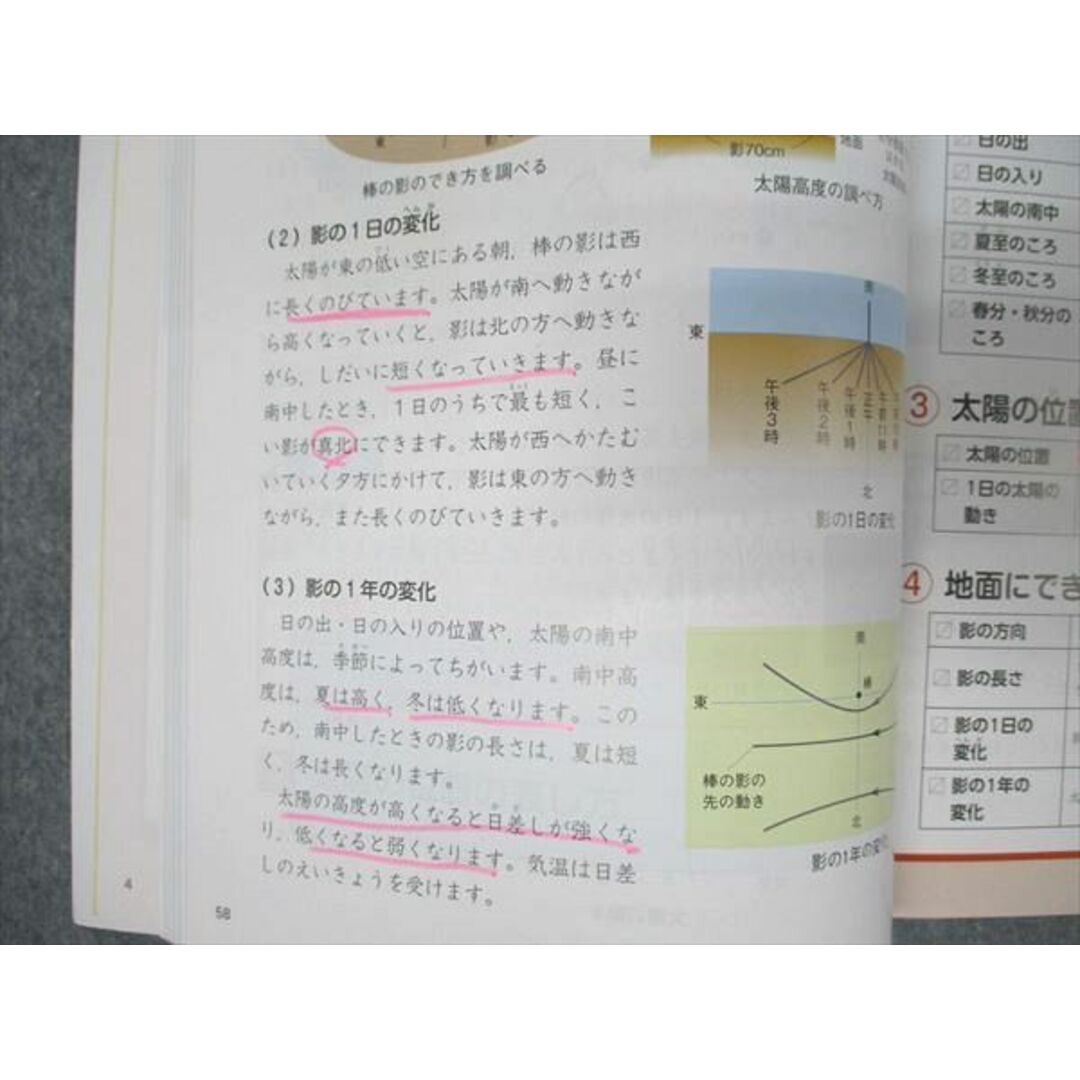 東
影
棒の影のでき方を調べる
影70cm
地面
太陽高度の調べ方
(2) 影の1日の変化
太陽が東の低い空にある朝，棒の影は西
に長くのびています。太陽が南へ動きなが
ら高くなっていくと，影は北の方へ動きな
がら，しだいに短くなっていきます。昼に
南中したとき，1日のうちで最も短く，こ
い影が真北にできます。太陽が西へかたむ
いていく夕方にかけて，影は東の方へ動き
ながら，また長くのびていきます。
南
東
午後3時
午後2時
午後1時
正午
北
影の1日の変化
(3) 影の1年の変化
日の出・日の入りの位置や，太陽の南中
高度は，季節によってちがいます。南中高
度は，夏は高く，冬は低くなります。この
ため，南中したときの影の長さは，夏は短
く，冬は長くなります。
太陽の高度が高くなると日差しが強くな
り，低くなると弱くなります。気温は日差
しのえいきょうを受けます。
南
棒
東
棒の影の
先の動き
北
影の1年の変化
4
58
日の出
日の入り
太陽の南中
夏至のころ
冬至のころ
春分・秋分の
ころ
③ 太陽の位置
太陽の位置
1日の太陽の
動き
④ 地面にでき
影の方向
影の長さ
影の1日の
変化
影の1年の
変化